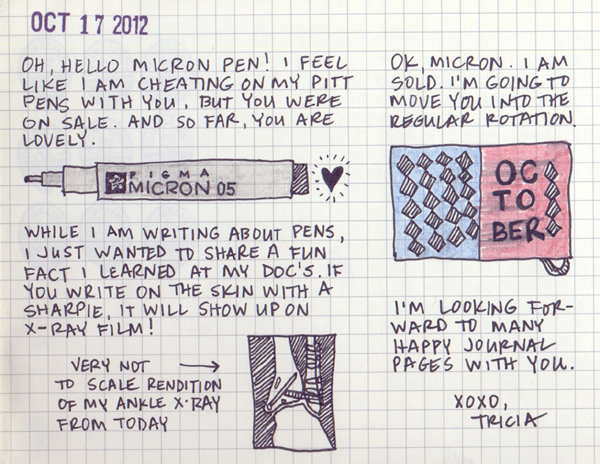 OCT 17 2012
OH, HELLO MICRON PEN! I FEEL
LIKE I AM CHEATING ON MY PITT
PENS WITH YOU, BUT YOU WERE
ON SALE. AND SO FAR, YOU ARE
LOVELY.
PIGMA
MICRON 05
WHILE I AM WRITING ABOUT PENS,
I JUST WANTED TO SHARE A FUN
FACT I LEARNED AT MY DOC'S. IF
YOU WRITE ON THE SKIN WITH A
SHARPIE, IT WILL SHOW UP ON
X-RAY FILM!
VERY NOT
TO SCALE RENDITION
OF MY ANKLE X-RAY
FROM TODAY
OK, MICRON. I AM
SOLD. I'M GOING TO
MOVE YOU INTO THE
REGULAR ROTATION.
OC
TO
BER
I'M LOOKING FOR-
WARD TO MANY
HAPPY JOURNAL
PAGES WITH YOU.
XOXO,
TRICIA